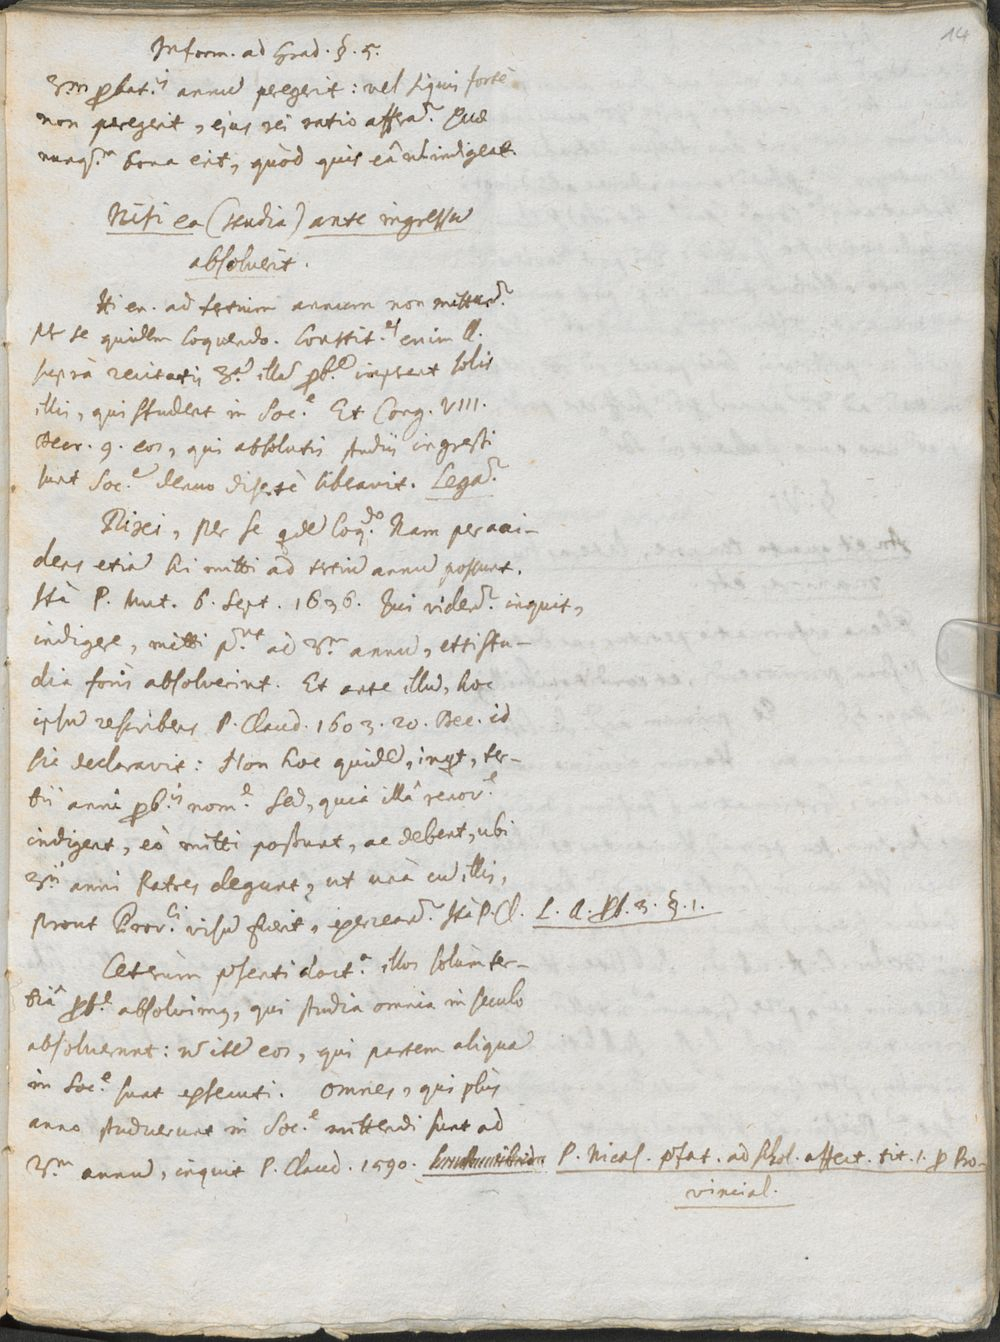 14
Inform. ad Grad. §. 5.
3.m probat.is annu peregerit: vel siqui fortè
non peregerit, ejus rei ratio affera.r Quæ
nunq.m bona erit, quòd quis eâ indigeat.
Nisi ea (studia) ante ingressu
absolverit.
Hi en. ad tertium annum non mittun.r
per se quidem loquendo. Constit.es enim A.
suprà recitatis 3.a illa prob.e imperant solis
illis, qui student in Soc.e Et Cong. VIII.
Decr. 9. eos, qui absolutis studiis ingressi
sunt Soc.e denuo disertè liberavit. Lega.r
Dixi, per se qde loq.do Nam per acci-
dens etia hi mitti ad tertiu annu possunt.
Ità P. Mut. 6. Sept. 1636. Qui viden.r inquit,
indigere, mitti p.nt ad 3.m annu, etti stu-
dia foris absolverint. Et ante illu, hoc
ipsu rescribens P. Claud. 1603. 20. Dec. id
sic declaravit: Non hoc quide, inqt, ter-
tii anni prob.is nom.e Sed, quia illâ renov.e
indigent, eò mitti possunt, ac debent, ubi
3.ii anni Patres degunt, ut unà cu illis,
prout Prov.li visu fuerit, exercean.r Ità P. Cl. L. A. p. 3. §. 1.
Ceterùm psenti doct.a illos solùm ter-
tiâ prob.e absolvimq, qui studia omnia in seculo
absolverunt: n ite eos, qui partem aliqua
in Soc.e sunt exsecuti. Omnes, qui plùs
anno studuerunt in Soc.e mittendi sunt ad
3.m annu, inquit P. Claud. 1590. P. Nical. pfat. ad Schol. affect. tit. 1. p Pro-
vincial.